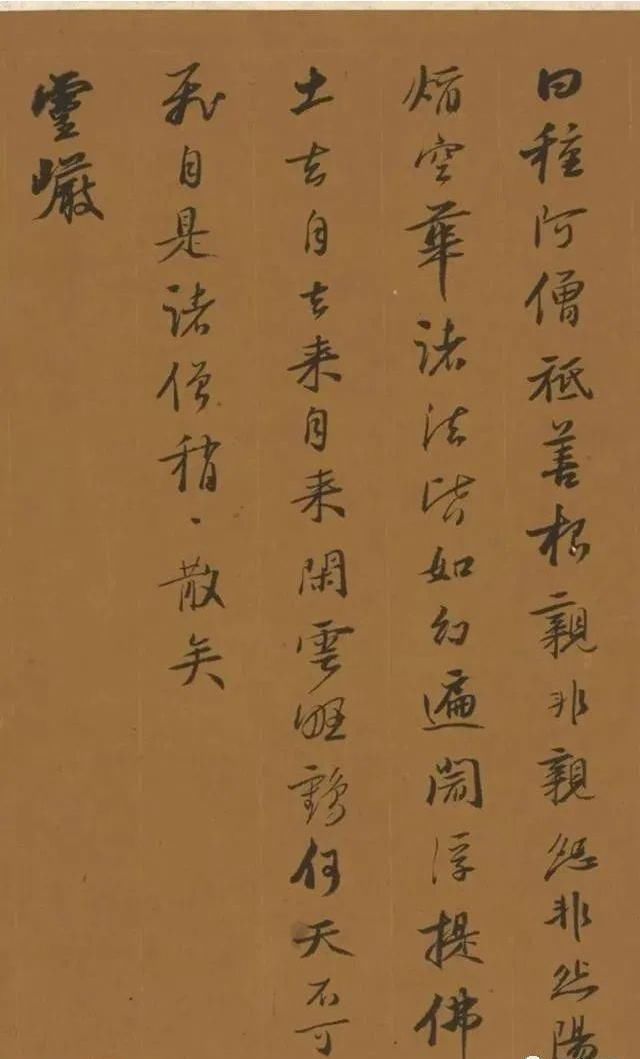 曰種阿僧祇善根親非親怨非怨陽
焰空華諸法皆如幻遍閻浮提佛
土去自去来自来閑雲野鶴何天不可
飛自是諸僧稍々散矣
靈巖